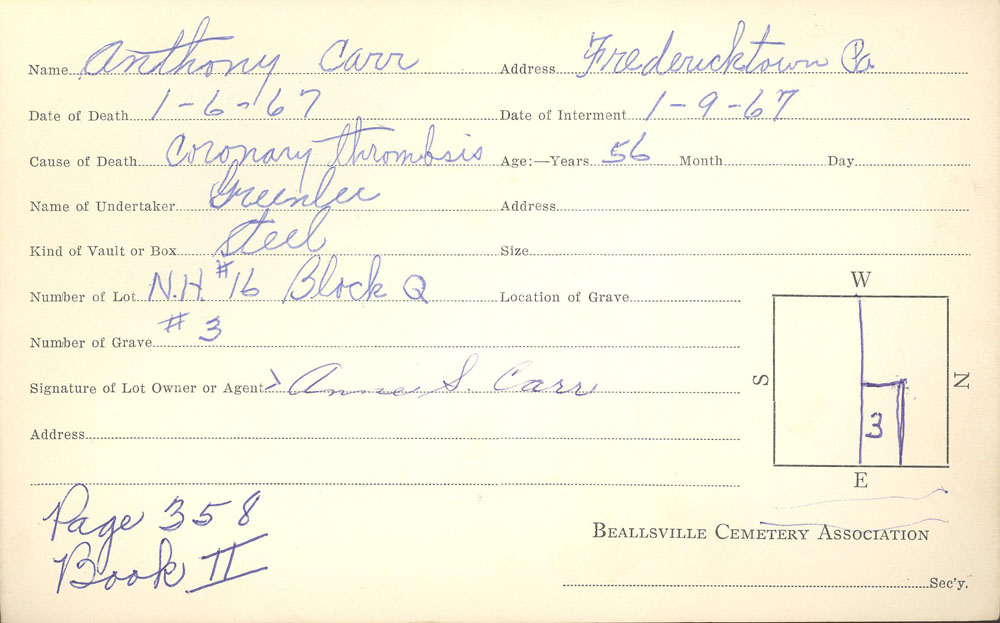 Name Anthony Carr Address Fredericktown Pa
Date of Death 1-6-67 Date of Interment 1-9-67
Cause of Death Coronary thrombsis Age:—Years 56 Month Day
Name of Undertaker Greenlee Address
Kind of Vault or Box Steel Size
Number of Lot N.H. #16 Block Q Location of Grave
Number of Grave #3
Signature of Lot Owner or Agent Anna S. Carr
Address
W
S
N
3
E
Page 358
Book II
BEALLSVILLE CEMETERY ASSOCIATION
Sec'y.